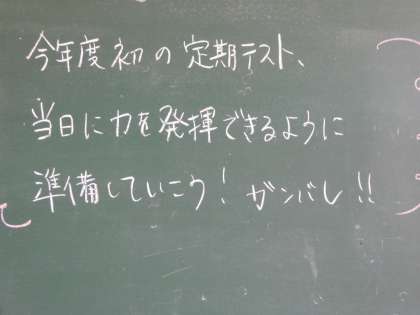 今年度初の定期テスト、
当日に力を発揮できるように
準備していこう！ガンバレ!!